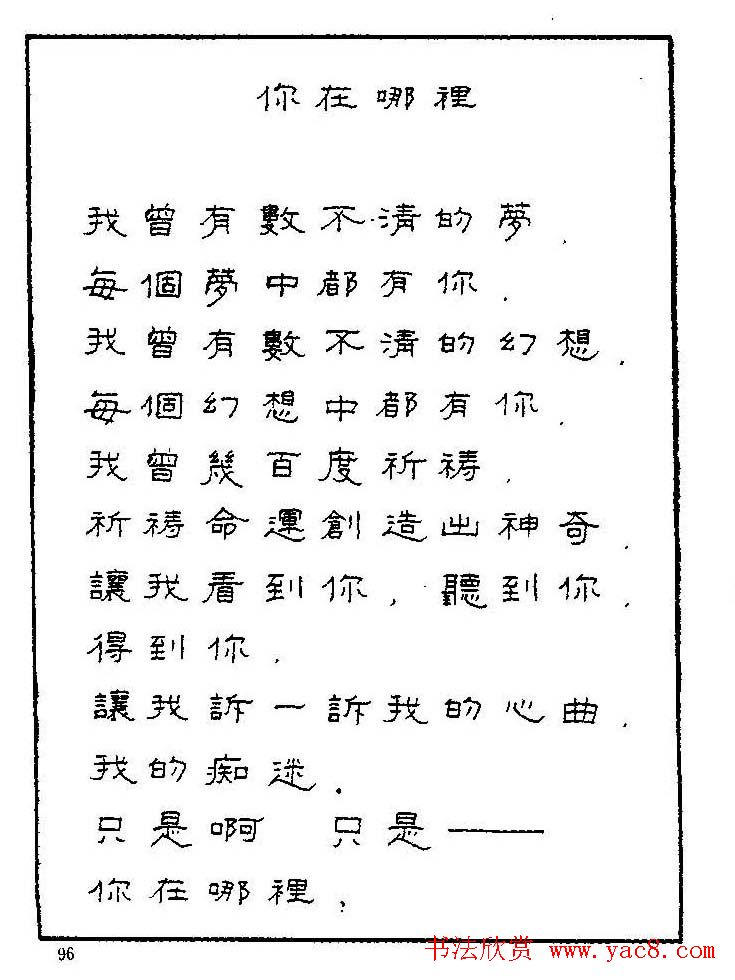 你在哪裡
我曾有數不清的夢，
每個夢中都有你．
我曾有數不清的幻想，
每個幻想中都有你．
我曾幾百度祈禱，
祈禱命運創造出神奇，
讓我看到你，聽到你，
得到你．
讓我訴一訴我的心曲，
我的痴迷．
只是啊 只是——
你在哪裡？
96
书法欣赏 www.yac8.com